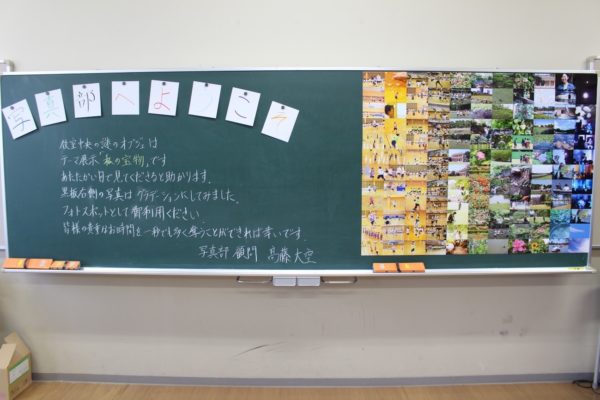 写真部へようこそ
教室中央の謎のオブジェは
テーマ展示「私の宝物」です
あたたかい目で見てくださると助かります。
黒板右側の写真は グラデーションにしてみました。
フォトスポットとして御利用ください
皆様の貴重なお時間を一秒でも多く奪うことができれば幸いです。
写真部 顧問 高藤 大空